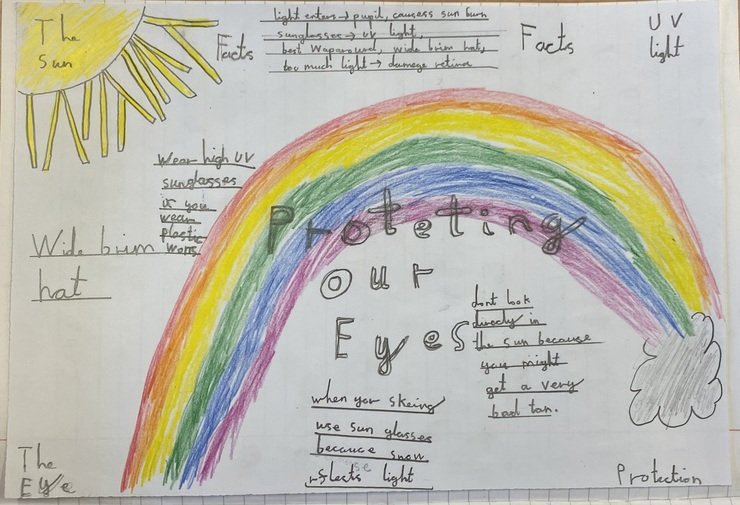 The
Sun
Facts
light enters → pupil, causess sun burn
sunglasses → UV light,
best Waparound, wide brim hat,
too much light → damege retina
Facts
UV
light
Wear high UV
sunglasses
is you
wear
plastic
wons
Wide brim
hat
Proteting
our
Eyes
dont look
directly in
the sun because
you might
get a very
bad tan.
when your skeing
use sun glasses
because snow
light
The
Eye
Protection